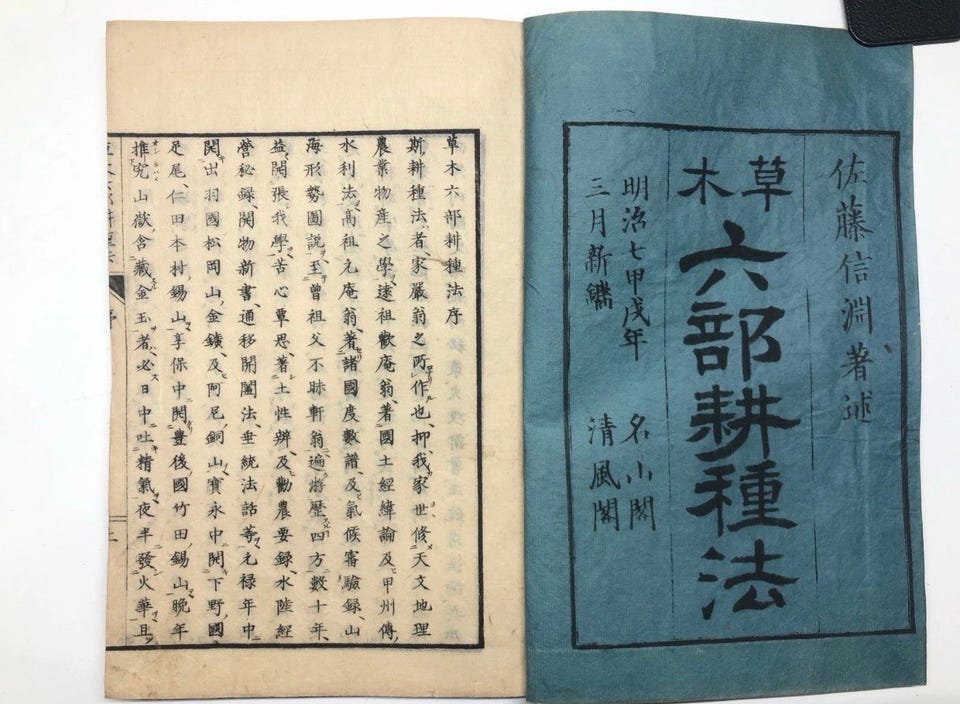 佐藤信淵著述
草木
六部耕種法
明治七甲戌年
三月新鐫
名山閣
清風閣
草木六部耕種法序
斯耕種法者家嚴翁之所作也抑我家世修天文地理
農業物產之學遠祖歡庵翁著國土經緯論及甲州傳
水利法高祖元庵翁著諸國度數譜及氣候審驗錄山
海形勢圖說至曾祖父不昧軒翁遍游歷四方數十年
益開張我學苦心覃思著土性辨及勸農要錄水陸經
營秘錄開物新書通移開闔法垂統法話等元禄年中
開出羽國松岡山金鑛及阿尼銅山寶永中開下野國
足尾仁田本村錫山享保中開豐後國竹田錫山晚年
推究山嶽含藏金玉者必日中吐精氣夜半發火華且